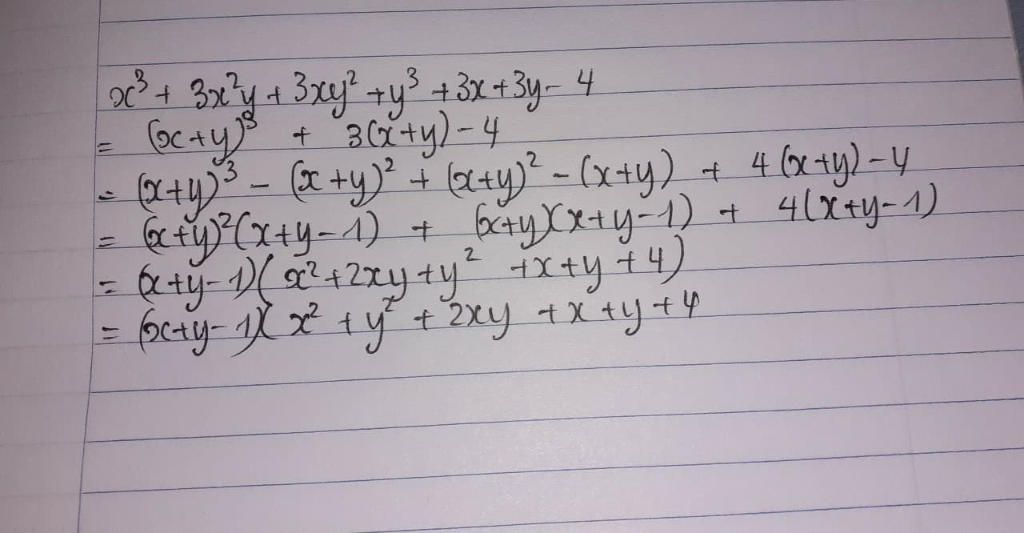 x³ + 3x²y + 3xy² + y³ + 3x + 3y - 4
= (x+y)³ + 3(x+y) - 4
= (x+y)³ - (x+y)² + (x+y)² - (x+y) + 4(x+y) - 4
= (x+y)²(x+y-1) + (x+y)(x+y-1) + 4(x+y-1)
= (x+y-1)(x² + 2xy + y² + x + y + 4)
= (x+y-1)(x² + y² + 2xy + x + y + 4